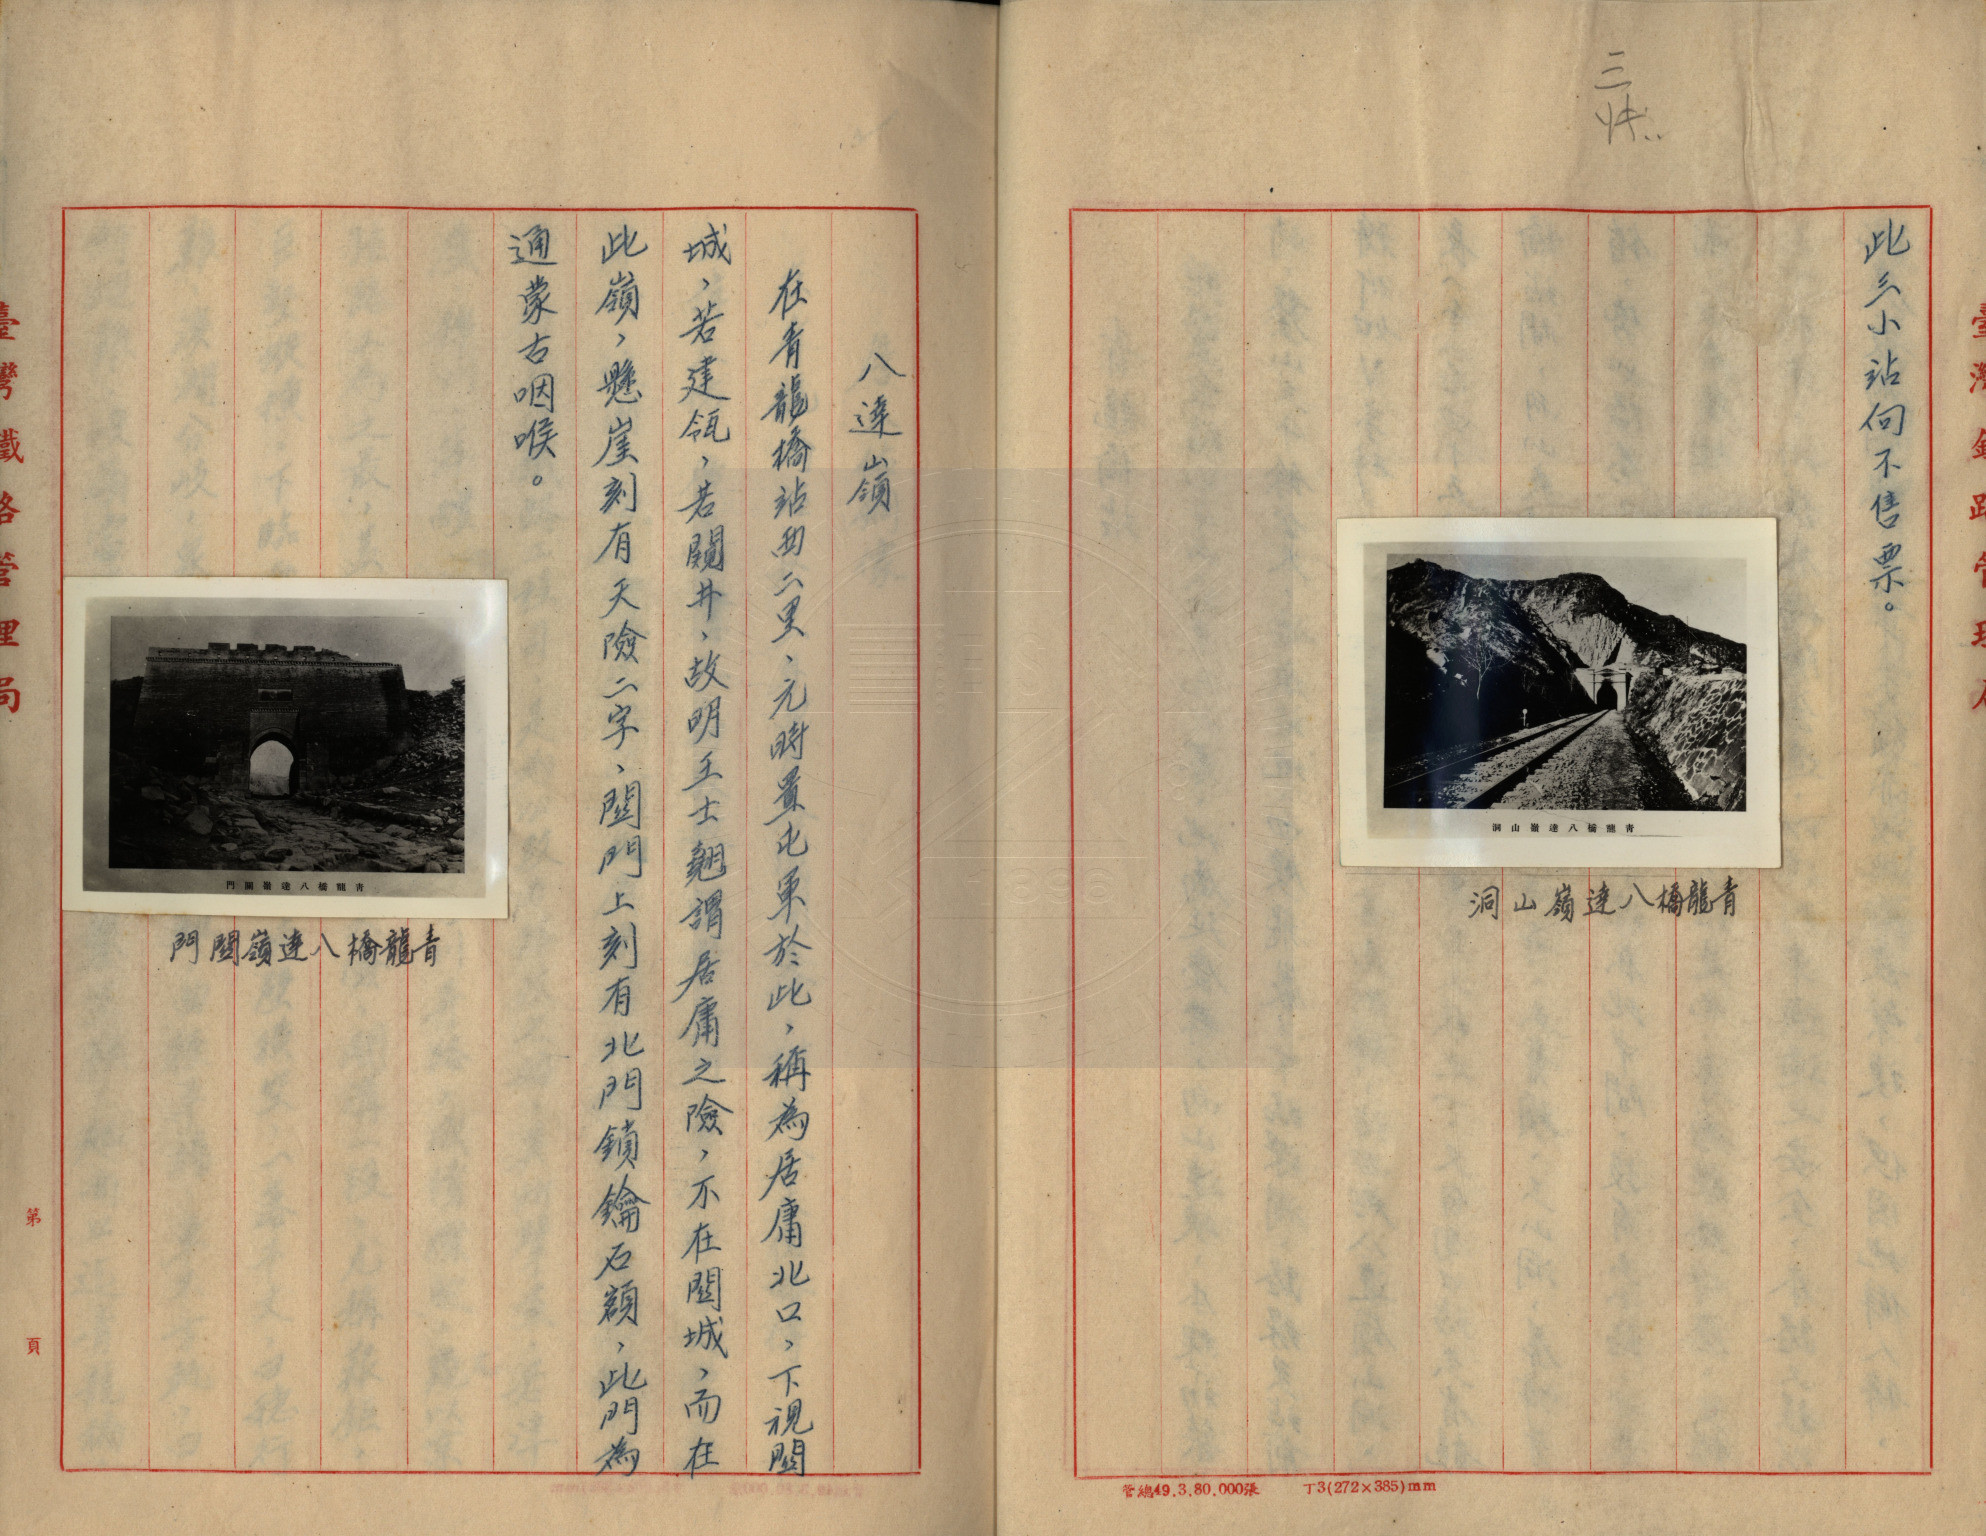 此三小站向不售票。
青龍橋八達嶺山洞
青龍橋八達嶺山洞
管總49.3.80,000張 丁3(272×385)mm
八達嶺
在青龍橋站西二里、元時置屯軍於此，稱為居庸北口，下視關
城，若建瓴，若闚井，故明王士翹謂居庸之險，不在關城，而在
此嶺，懸崖刻有天險二字、關門上刻有北門鎖鑰石額，此門為
通蒙古咽喉。
青龍橋八達嶺關門
青龍橋八達嶺關門
臺灣鐵路管理局
第 頁